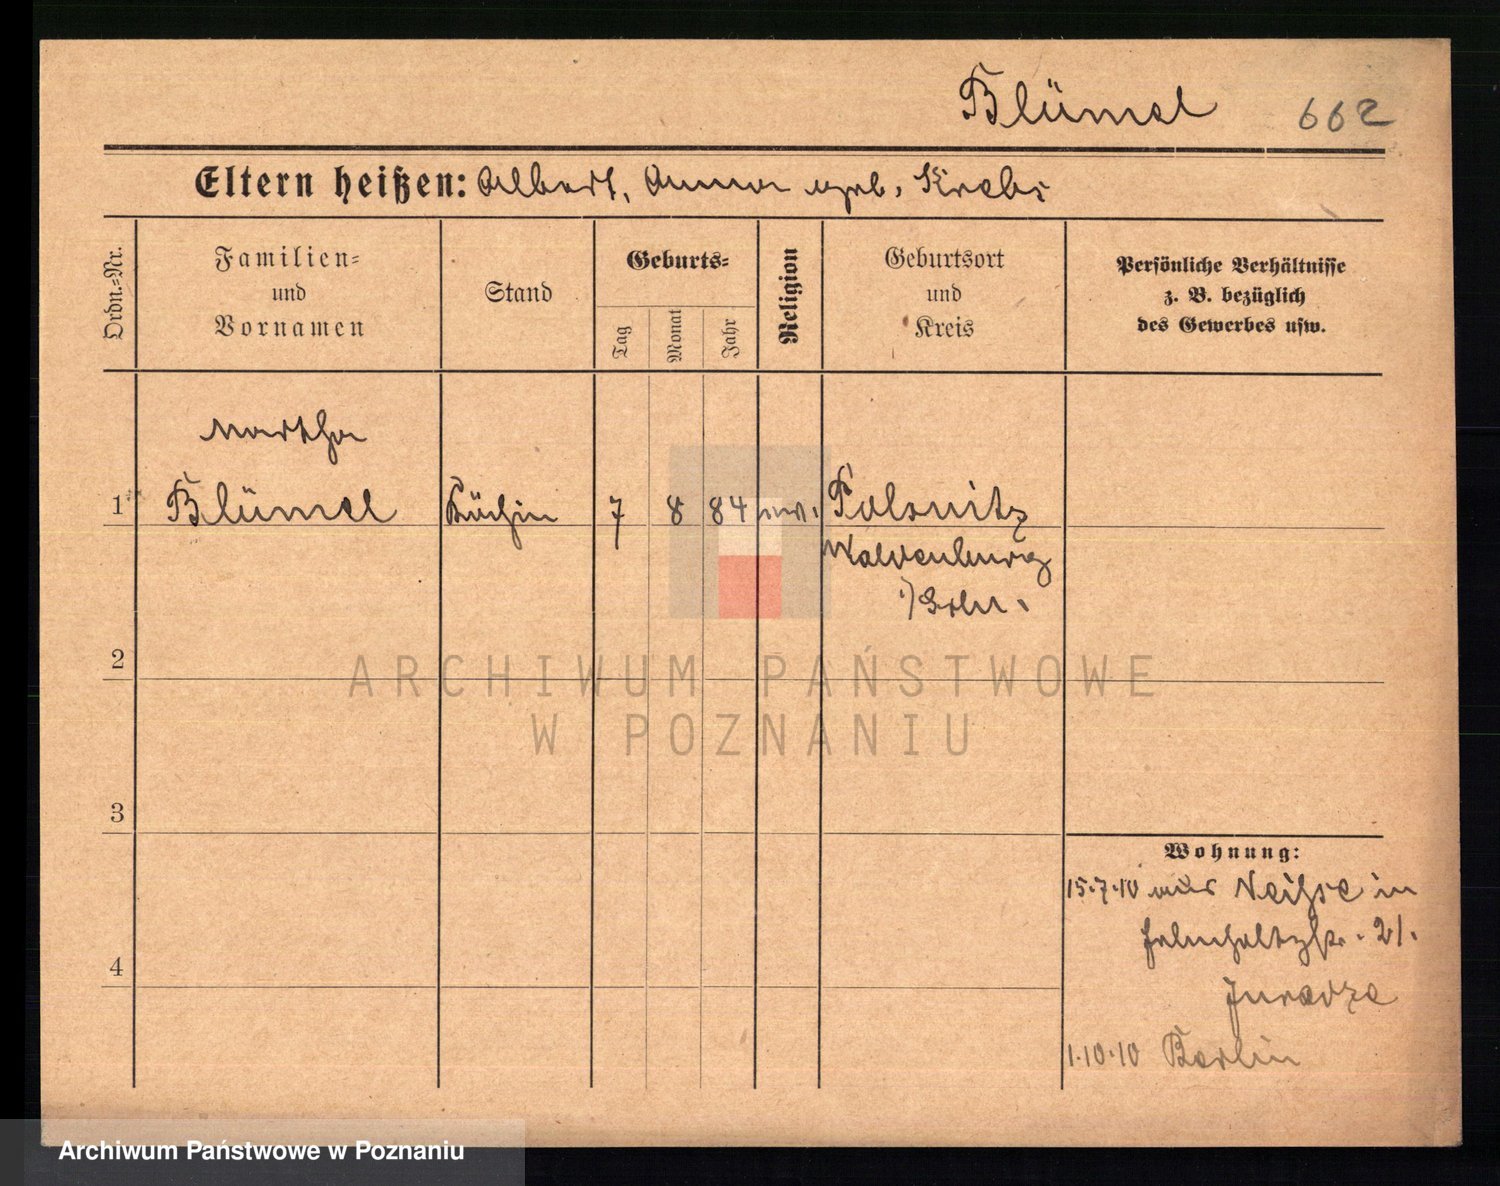 Blümel 662
Eltern heißen: Albert, Anna geb. Krebs
Ordn.=Nr.
Familien=
und
Vornamen
Stand
Geburts=
Tag
Monat
Jahr
Religion
Geburtsort
und
Kreis
Persönliche Verhältnisse
z. B. bezüglich
des Gewerbes usw.
Martha
1 Blümel Köchin 7 8 84 ev. Polsnitz
Waldenburg
i/Schl.
2
3
4
Wohnung:
15.7.10 aus Neisse in
21.
1.10.10 Berlin
ARCHIWUM PAŃSTWOWE
W POZNANIU
Archiwum Państwowe w Poznaniu